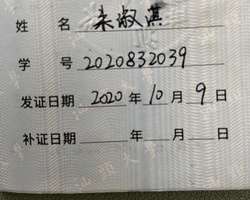 姓 名 朱淑淇
学 号 2020832039
发证日期 2020 年 10 月 9 日
补证日期 年 月 日